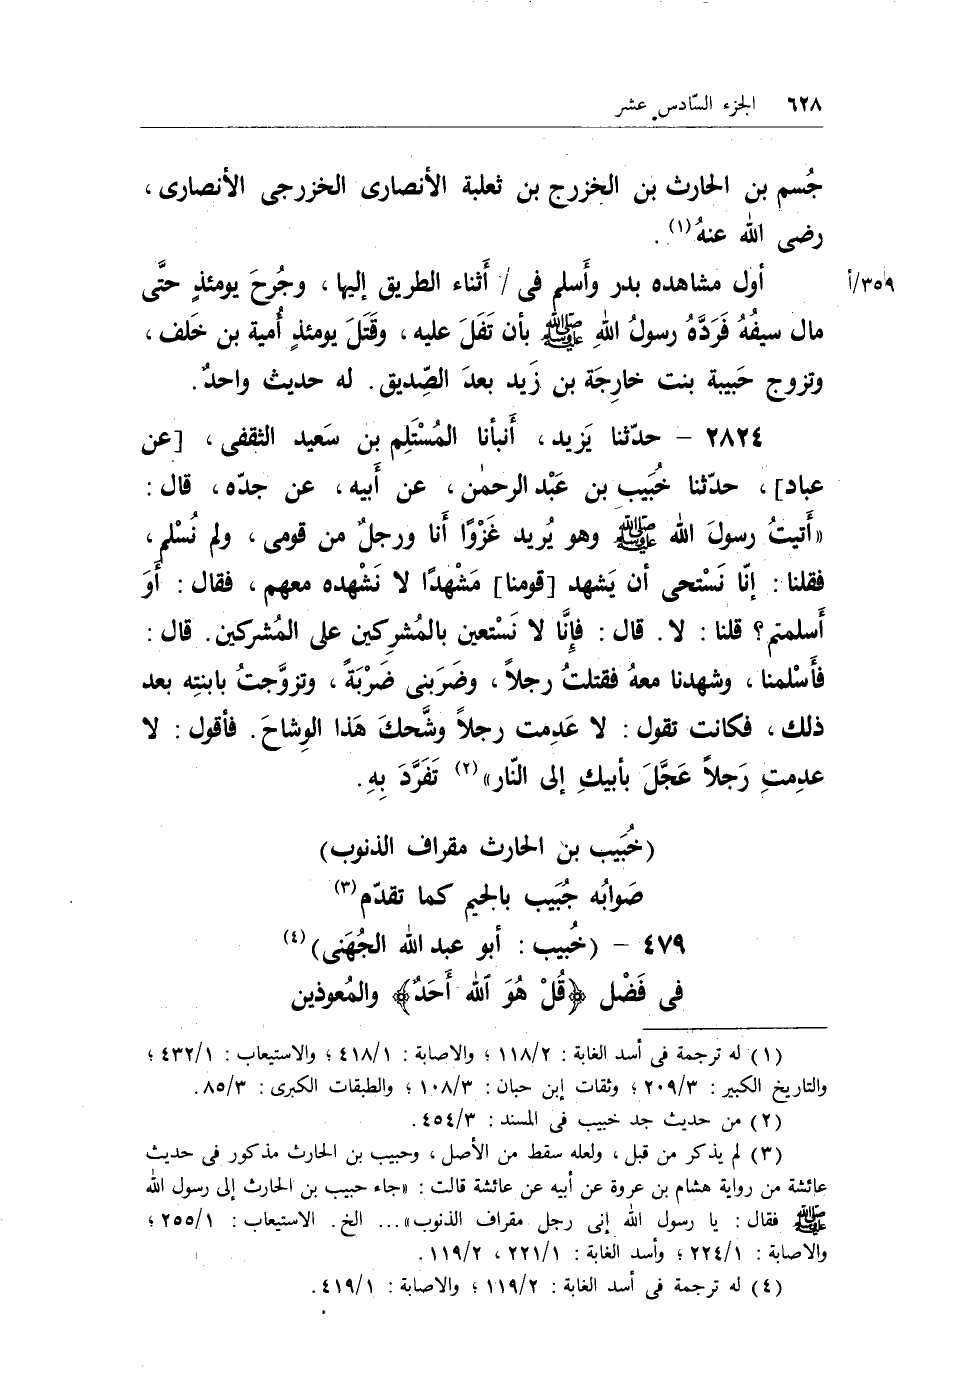 ٦٢٨ الجزء السّادس عشر
جُسم بن الحارث بن الخزرج بن ثعلبة الأنصارى الخزرجى الأنصارى ،
رضى الله عنهُ(١) .
أول مشاهده بدر وأَسلم فى / أَثناء الطريق إليها ، وجُرحَ يومئذٍ حتَّى
٣٥٩/أ
مال سيفُهُ فَرَدَّهُ رسولُ اللهِ ﷺ بأن تَفَلَ عليه ، وقَتَلَ يومئذٍ أُمية بن خَلف ،
وتزوج حَبيبة بنت خارِجَة بن زَيد بعدَ الصِّديق . له حديث واحدٌ .
٢٨٢٤ – حدّثنا يَزيد ، أَنبأنا المُسْتَلِم بن سَعيد الثقفى ، [عن
عباد] ، حدّثنا خُبَيب بن عَبْد الرحمٰن ، عن أَبيه ، عن جدّه ، قال :
«أَتيتُ رسولَ الله ﷺ وهو يُريد غَزْوًا أَنا ورجلٌ من قومى ، ولم نُسْلم ،
فقلنا : إنّا نَسْتحى أن يَشهد [قومنا] مَشْهدًا لا نَشْهده معهم ، فقال : أَوَ
أَسلمتم ؟ قلنا : لا . قال : فإِنَّا لا نَسْتعين بالمُشرِكين على المُشركين . قال :
فأَسْلمنا ، وشهدنا معهُ فقتلتُ رجلاً ، وضَرَبنى ضَرْبَةً ، وتزوَّجتُ بابنتِه بعد
ذلك ، فكانت تقول : لا عَدِمت رجلاً وشَّحكَ هَذا الوِشاحَ . فأقول : لا
عدِمتِ رَجلاً عَجَّلَ بأبيكِ إلى النّار» (٢) تَفَرَّدَ بِهِ .
(خُبَيب بن الحارث مقراف الذنوب)
صَوابُه جُبَيب بالجيم كما تقدّم(٣)
٤٧٩ – (خُبيب : أبو عبد الله الجُهَنى)(٤)
فى فَضْل ﴿قُلْ هُوَ ٱلله أَحَدٌ﴾ والمُعوذين
(١) له ترجمة فى أسد الغابة : ١١٨/٢ ؛ والاصابة : ٤١٨/١ ؛ والاستيعاب : ٤٣٢/١ ؛
والتاريخ الكبير : ٢٠٩/٣ ؛ وثقات إبن حبان : ١٠٨/٣ ؛ والطبقات الكبرى : ٨٥/٣ .
(٢) من حديث جد خبيب فى المسند : ٤٥٤/٣ .
(٣) لم يذكر من قبل ، ولعله سقط من الأصل ، وحبيب بن الحارث مذكور فى حديث
عائشة من رواية هشام بن عروة عن أبيه عن عائشة قالت : «جاء حبيب بن الحارث إلى رسول الله
ﷺ فقال : يا رسول الله إنى رجل مقراف الذنوب» ... الخ . الاستيعاب : ٢٥٥/١ ؛
والاصابة : ٢٢٤/١ ؛ وأسد الغابة : ٢٢١/١ ، ١١٩/٢ .
(٤) له ترجمة فى أسد الغابة : ١١٩/٢ ؛ والاصابة : ٤١٩/١ .